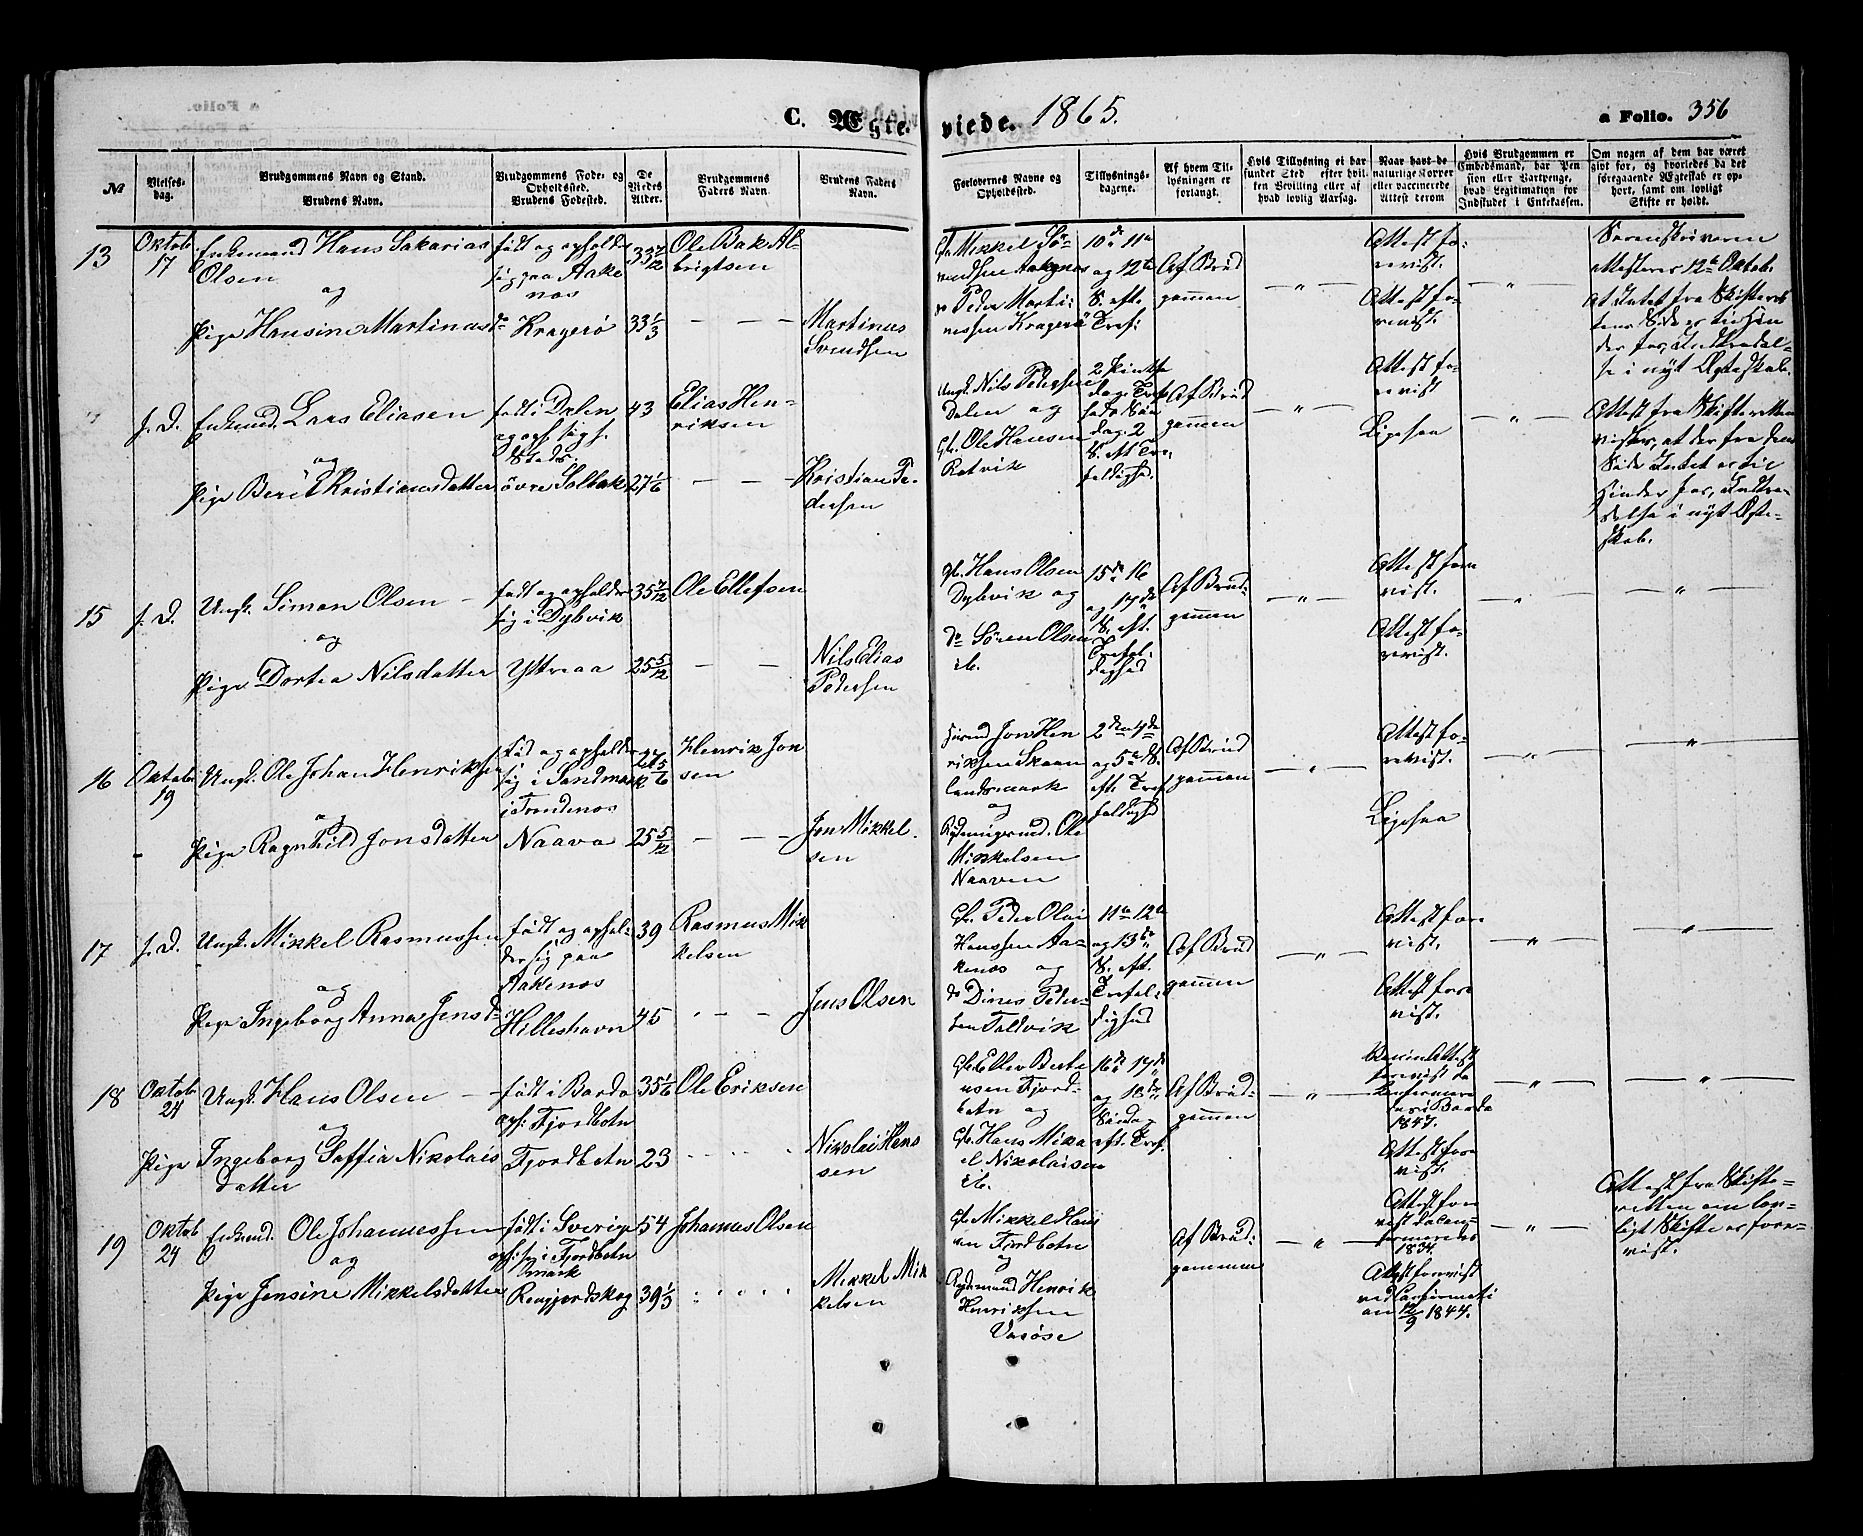 C. Ægte-
viede. 1865.
a Folio. 356
№
Vielses-
dag.
Brudgommens Navn og Stand.
Brudens Navn.
Brudgommens Føde- og
Opholdssted.
Brudens Fødested.
De
Viedes
Alder.
Brudgommens
Faders Navn.
Brudens Faders
Navn.
Forlovernes Navne og
Opholdssted.
Tillysnings-
dagene.
Af hvem Til-
lysningen er
forlangt.
Hvis Tillysning ei har
fundet Sted efter hvil-
ken Bevilling eller af
hvad lovlig Aarsag.
Naar havt de
naturlige Kopper
eller vaccinerede
Attest derom
Hvis Brudgommen er
Embedsmand, har Pen
sion eller Vartpenge,
hvad Legitimation for
Indskudet i Enkekassen.
Om nogen af dem har været
givt for, og hvorledes da det
foregaaende Ægteskab er op-
hørt, samt om lovligt
Skifte er holdt.
13
Oktob
17
Enkemand Hans Sakarias
Olsen
og
Pige Hansine Martinusd
født og opholder
sig paa Aake
næs
Kragerø
33 7/12
33 1/3
Ole Bak Al
brigtsen
Martinus
Svendsen
Gb. Mikkel Sø-
rensen Aakenæs
Peder Marti-
nussen Kragerø
10de 11te
og 12te
S. efte
Tref:
Af Brud
gommen
Attest fo-
revist.
Attest fo-
revist.
Sorenskriveren
attesterer 12te Oktob.
at Intet fra Skifteret
tens Side er til Hin
der for, Indtrædel-
se i nyt Ægteskab.
s. D.
Enkemd. Lars Eliasen
og
Pige Berit Kristiansdatter
født i Dalen
og oph. sig s.
Steds.
øvre Solbak
43
27 1/6
Elias Hen-
riksen
Kristian Pe-
dersen
Ungk. Nils Pedersen
Dalen og
Gb. Ole Hansen
Rotvik
2 Pintse
dag, Tref
S. eft Tre-
foldighed.
Af Brud
gommen
Attest fo-
revist
Ligesaa
Attest fra Skifteretten
viser, at der fra dens
Side Intet er til
Hinder for, Indtræ-
delse i nyt Ægte-
skab.
15
s. D.
Ungk. Simon Olsen
og
Pige Dortea Nilsdatter
født og opholder
sig i Dybvik
Yttreaa
35 7/12
25 5/12
Ole Ellefsen
Nils Elias
Pedersen
Gb. Hans Olsen
Dybvik og
do Søren Olsen
ib.
15de 16
og 17de
S. eft.
Trefol-
dighed
Af Brud-
gommen
Attest fore
vist.
Attest fo-
revist.
16
Oktober
19
Ungk. Ole Johan Henriksen
og
Pige Ragnhild Jonsdatter
født og opholder
sig i Sandmark
i Trondenæs
Naava
27 5/6
25 5/12
Henrik Jon
sen
Jon Mikkel-
sen
Jon Hen
riksen Skaan
landsmark
og
Ole
Mikkelsen
Naaven
2de 4de
og 5te S.
efte Tref
foldighed
Af Brud
gommen
Attest fo-
revist.
Ligesaa
17
s. D.
Ungk. Mikkel Rasmussen
og
Pige Ingeborg Anna Jensd-
født og ophol-
der sig paa
Aakenæs
Hilleshavn
39
45
Rasmus Mik
kelsen
Jens Olsen
Gb. Peder Olai
Hanssen Aa-
kenæs og
do Dines Peder-
sen Faldvik
11te 12te
og 13de
S. eft.
Trefol-
dighed
Af Brud
gommen
Attest fore
vist.
Attest fore
vist.
18
Oktob
24
Ungk. Hans Olsen
og
Pige Ingeborg Soffia Nikolais
datter
født i Bardo
oph: Fjordbotn
Fjordbotn
35 1/6
23
Ole Eriksen
Nikolai Hans
sen
Gb. Elling Bertе
usen Fjord-
botn og
Gb. Hans Mika
el Nikolaisen
ib.
16de 17de
og 18de
Søndag
eft. Tref.
Af Brud-
gommen
Attest
forevist da
konfirmere
des i Bardo
1847.
Attest fore
vist.
19
Oktob
24
Enkemd. Ole Johannessen
og
Pige Jensine Mikkelsdatter
født i Sverige
oph: sig i Fjordbotn
mark
Rossfjordskog
54
39 1/3
Johannes Olsen
Mikkel Mik
kelsen
Gb. Mikkel Hans
en Fjordbotn
og
Henrik
Henriksen
Af Brud-
gommen
Attest fore
vist da kon-
firmeredes
1834.
Attest forevist
ved Confirmati
on 12/9 1844.
Attest fra Skifte-
retten om lov-
ligt Skifte er fore-
vist.